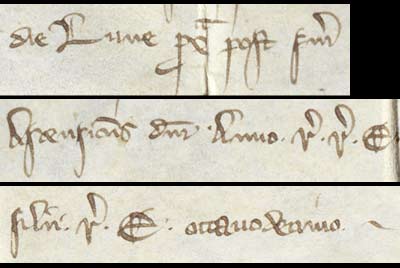 die Lune px̄ post fm̄
Ascensionis dnī Anno. r̄. r̄. E.
filii. r̄. E. octauodecimo.